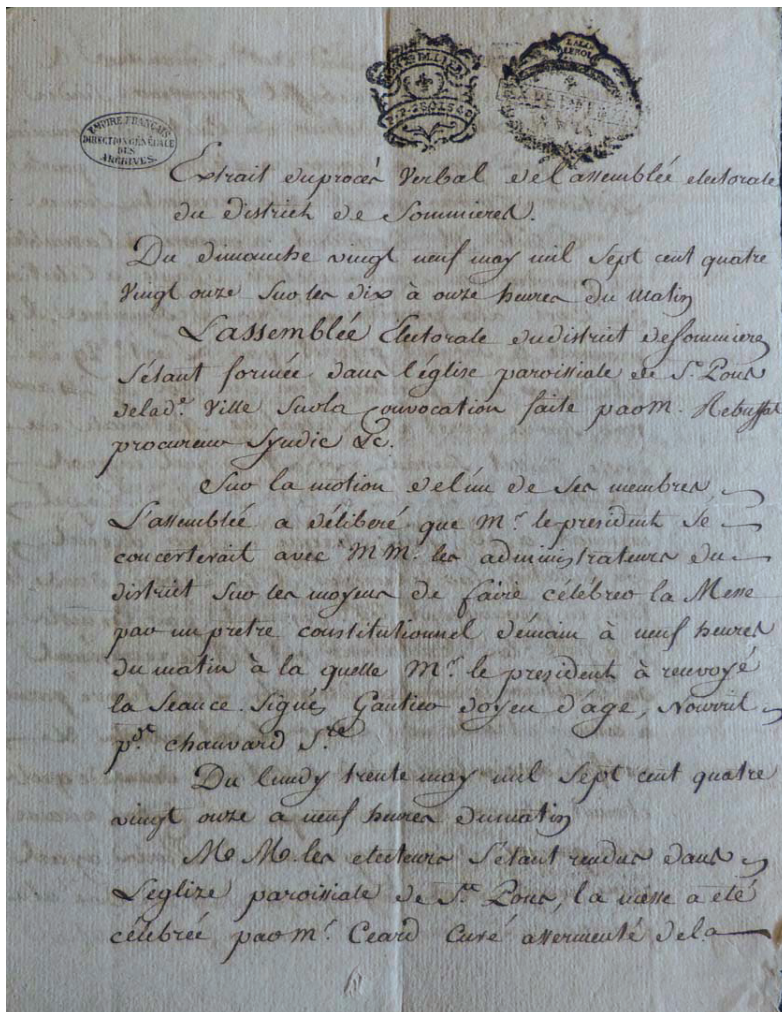 EMPIRE FRANÇAIS
DIRECTION GÉNÉRALE
DES
ARCHIVES
Extrait du procès Verbal de l'assemblée electorale
du district de Sommieres.
Du dimanche vingt neuf may mil Sept cent quatre
vingt onze Sur les dix à onze heures du matin
L'assemblée Électorale du district de Sommieres
S'étant formée dans l'église paroissiale de St. Pons
de lade. Ville Sur la Convocation faite par m. Rebuffat
procureur Syndic &c.
Sur la motion de l'un de Ses membres
L'assemblée a délibéré que Mr. le president Se
concerterait avec MM. les administrateurs du
district Sur les moyens de faire célébrer la Messe
par un pretre constitutionnel demain à neuf heures
du matin à la quelle Mr. le president à renvoyé
la Seance. Signés Gautier doyen d'age, Nourrit
pdt. chauvard Sre
Du lundy trente may mil Sept cent quatre
vingt onze a neuf heures du matin
MM. les electeurs S'etant rendus dans
L'eglize paroissiale de St. Pons, la messe a été
célébrée par mr. Ceard Curé assermenté de la